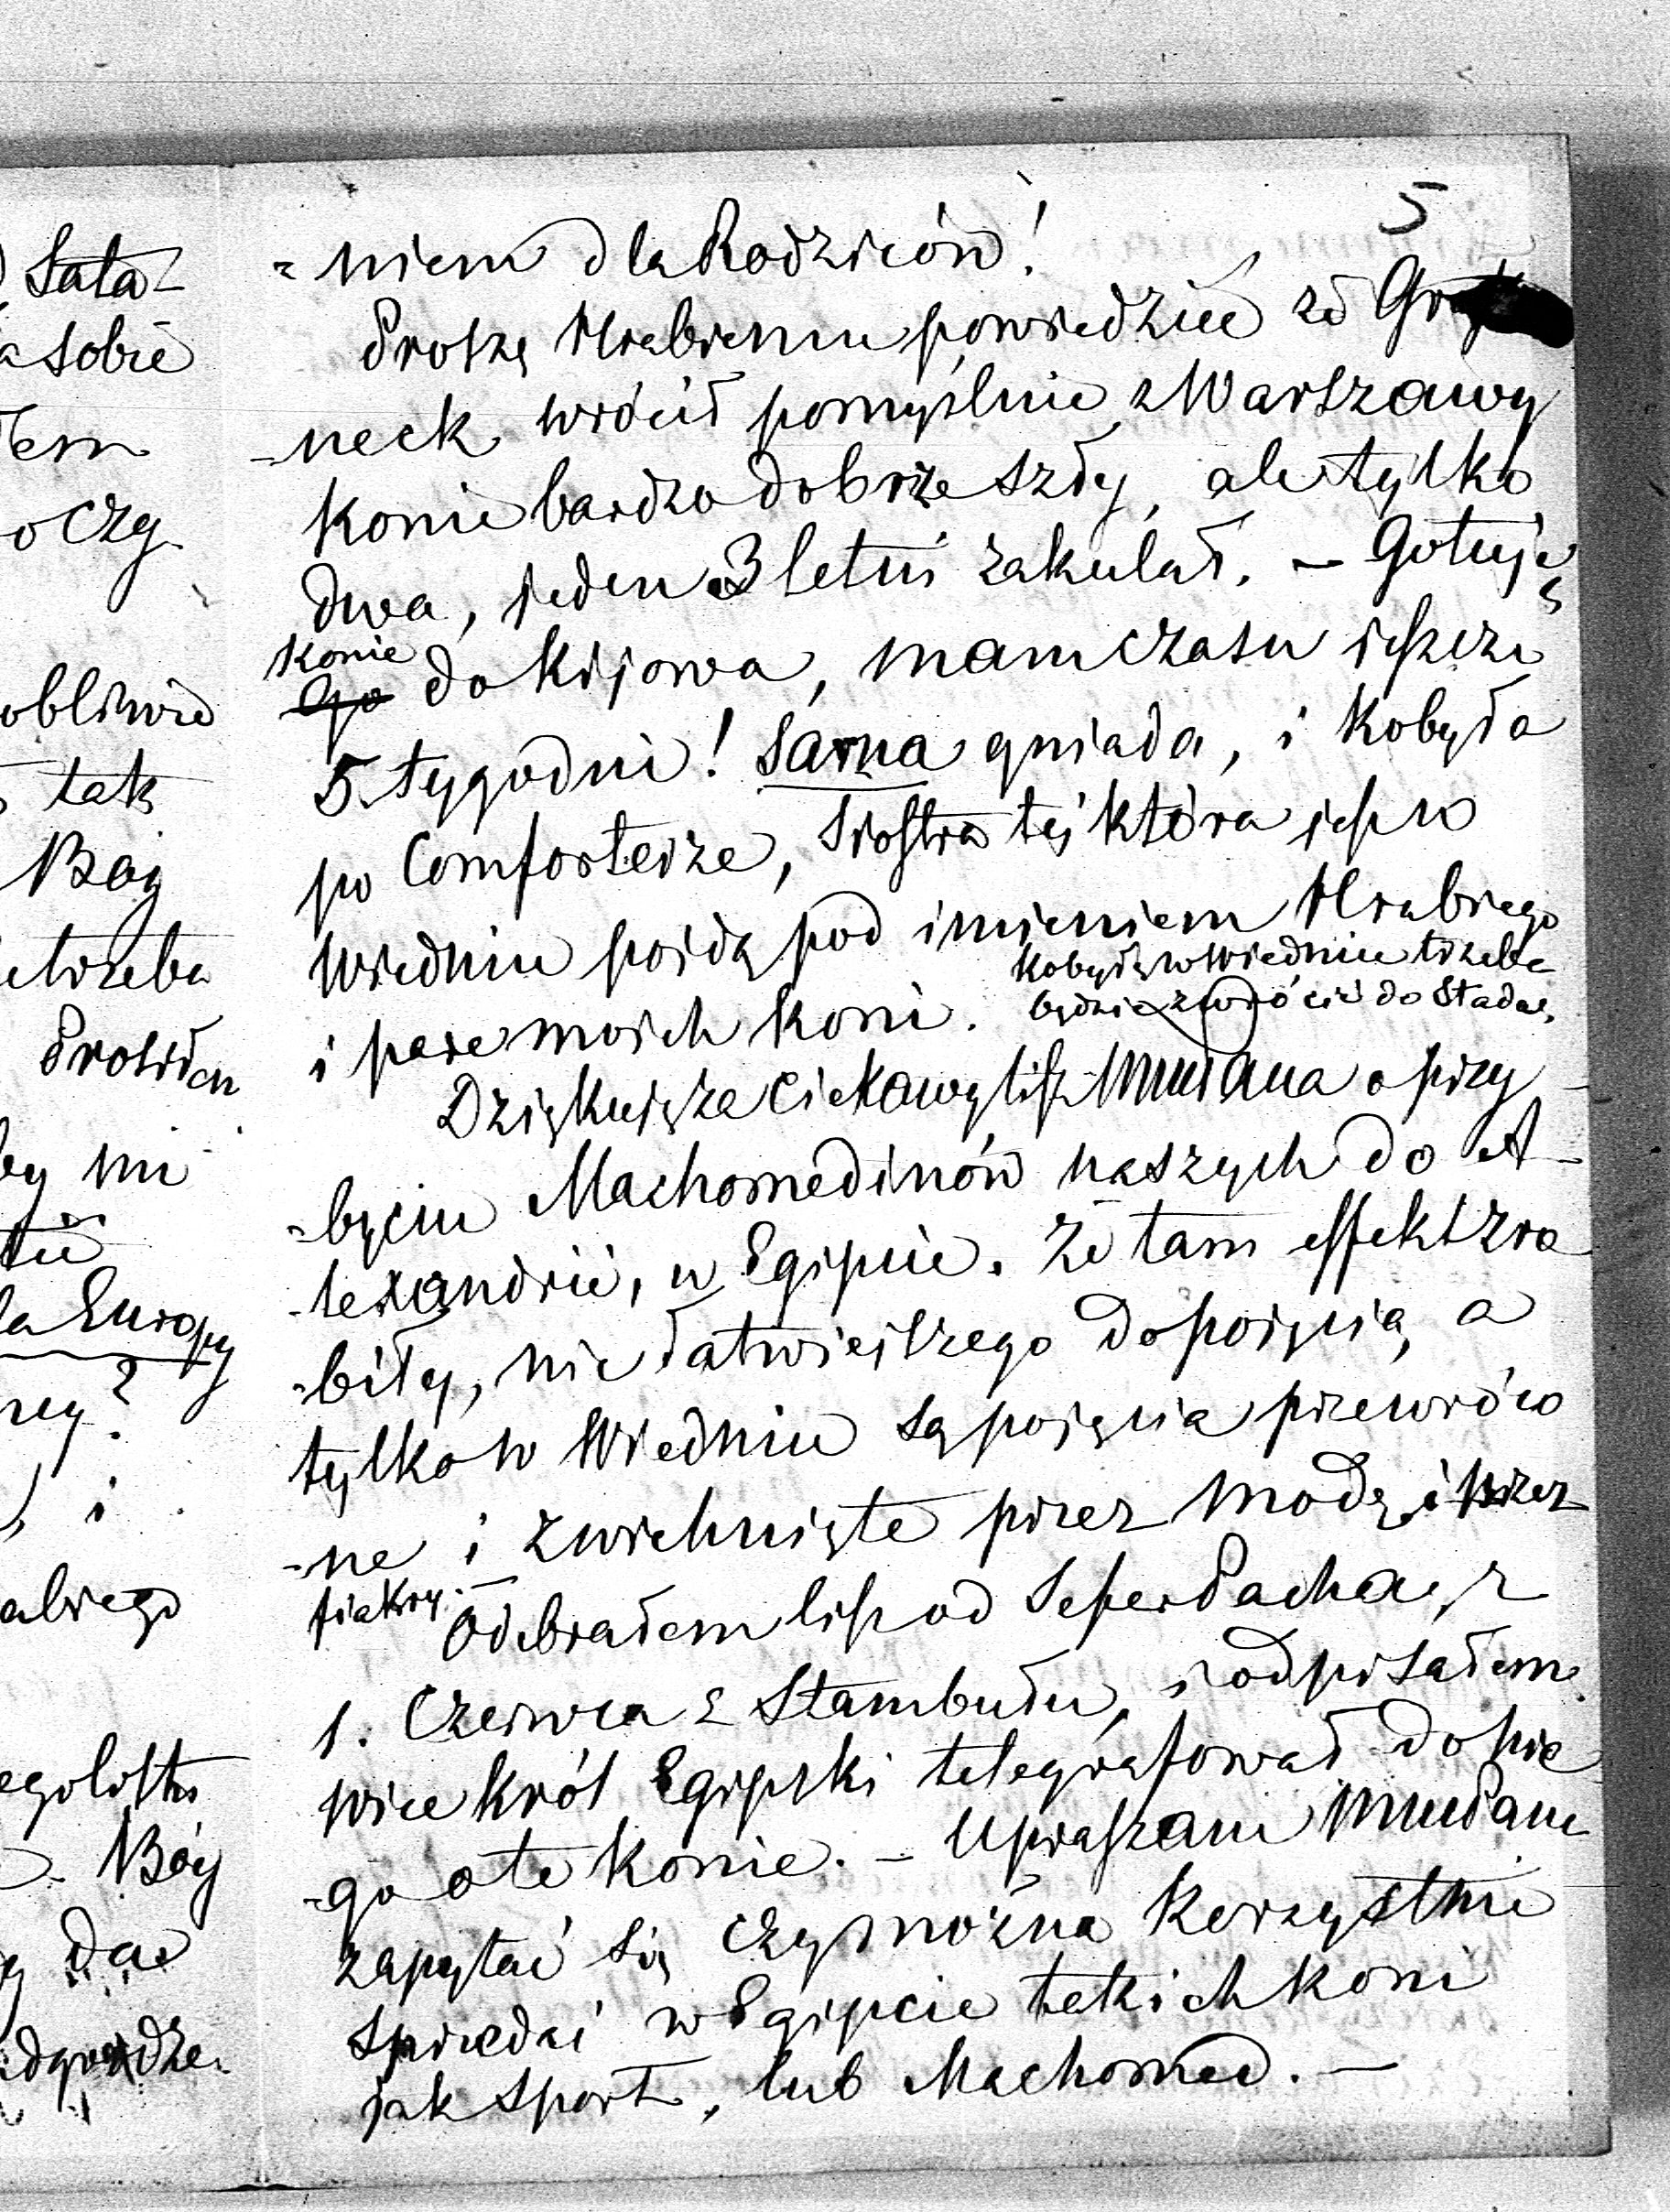 5
-niem dla Rodziców!
Proszę Hrabiemu powiedzieć że
-neck wrócił pomyślnie z Warszawy
konie bardzo dobrze szły, ale tylko
dwa, jeden 3 letni zakulał. - Gotuję
konie
do Kijowa, mam czasu jeszcze
5 tygodni! Sarna gniada, i Kobyła
po Comforterze, Siostra téj która jest w
Wiedniu pojdą pod imieniem Hrabiego
i parę moich koni.
Kobyłę w Wiedniu trzeba
będzie zwrócić do Stada.
Dziękuję za ciekawy list o przy-
-byciu Machomedinów naszych do A-
-lexandrii, w Egipcie. Że tam effekt zro
-biły, nic łatwiejszego do pojęcia, a
tylko w Wiedniu są pojęcia przewróco
-ne i zwichnięte przez modę i przez
fiakry.
Odebrałem list od Sefer Pacha, z
1. Czerwca z Stambułu, i odpisałem.
Wice Król Egipski telegrafował do nie
-go o te konie. - Upraszam
zapytać się czy można korzystnie
sprzedać w Egipcie takich koni
jak Sport, lub Machomed. -
Sata-
sobie
łem
oczy
obliwie
tak
Bóg
trzeba
Prosiłem
by mi
la Europy
, i
abiego
Bóg
da